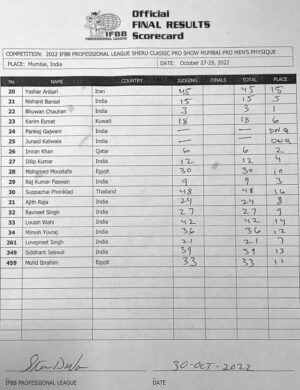 IFBB
PROFESSIONAL LEAGUE
Official
FINAL RESULTS
Scorecard
COMPETITION: 2022 IFBB PROFESSIONAL LEAGUE SHERU CLASSIC PRO SHOW MUMBAI PRO MEN'S PHYSIQUE
PLACE: Mumbai, India DATE: October 27-29, 2022
No NAME COUNTRY JUDGING FINALS TOTAL PLACE
20 Yashar Anbari Iran 45 45 15
21 Nishant Bansal India 15 15 5
22 Bhuwan Chauhan India 3 3 1
23 Karim Esmat Kuwait 18 18 6
24 Pankaj Gajwani India — — DNQ
25 Junaid Kaliwala India — — DNQ
26 Imran Khan Qatar 6 6 2
27 Dilip Kumar India 12 12 4
28 Mohamed Moustafa Egypt 30 30 10
29 Raj Kumar Paswan India 9 9 3
30 Suppachai Phonklad Thailand 48 48 16
31 Ajith Raja India 24 24 8
32 Ravneet Singh India 27 27 9
33 Louish Wahi India 42 42 14
34 Mimoh Yuvraj India 36 36 12
261 Lovepreet Singh India 21 21 7
349 Siddhant Jaiswal India 39 39 13
459 Mohd Ibrahim Egypt 33 33 11
30-OCT-2022
IFBB PROFESSIONAL LEAGUE DATE